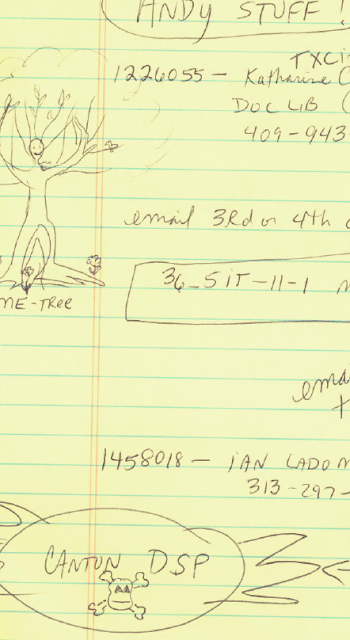 ANDY STUFF!
TXCi
1226055 - Katharine C
DOC LIB
409-943
email 3Rd or 4th
36_SiT-11-1
ME-TRee
ema
1458018 - IAN LADOM
313-297-
CANTON DSP